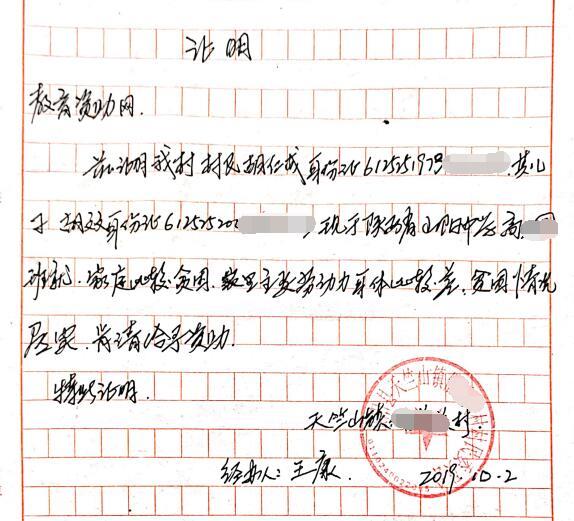 证明
教育资助网.
兹证明我村村民胡仁成身份证612525197 其儿
子 身份证61252520 ,现于陕西省山阳中学高
班就 家庭比较贫困. 家里主要劳动力身体比较差,贫困情况
属实,肯请给予资助.
特此证明.
天竺山镇 村.
经办人:王康 2019.10.2
天竺山镇